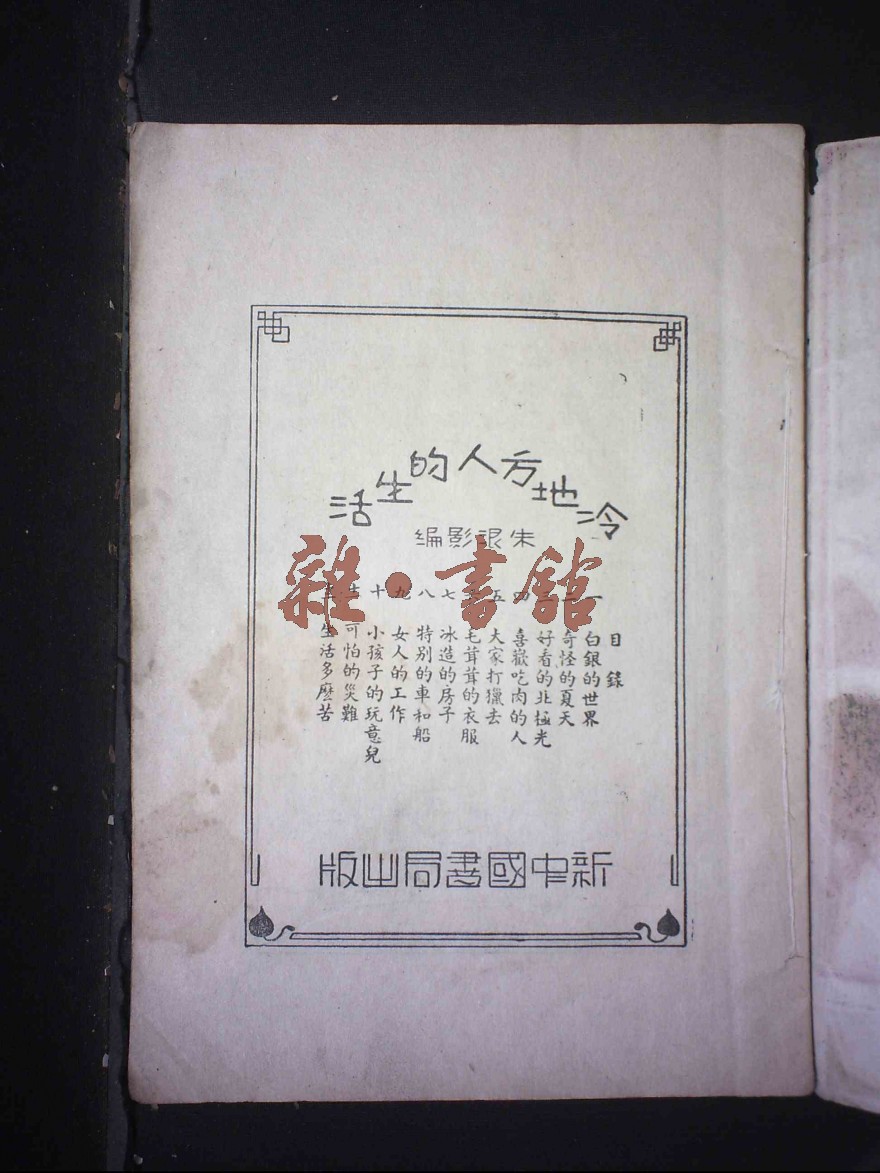 冷地方人的生活
朱影編
目錄
一 白銀的世界
奇怪的夏天
好看的北極光
四 喜歡吃肉的人
五 大家打獵去
毛茸茸的衣服
七 冰造的房子
八 特別的車和船
九 女人的工作
十 小孩子的玩意兒
可怕的災難
生活多麼苦
新中國書局出版
雜·書館